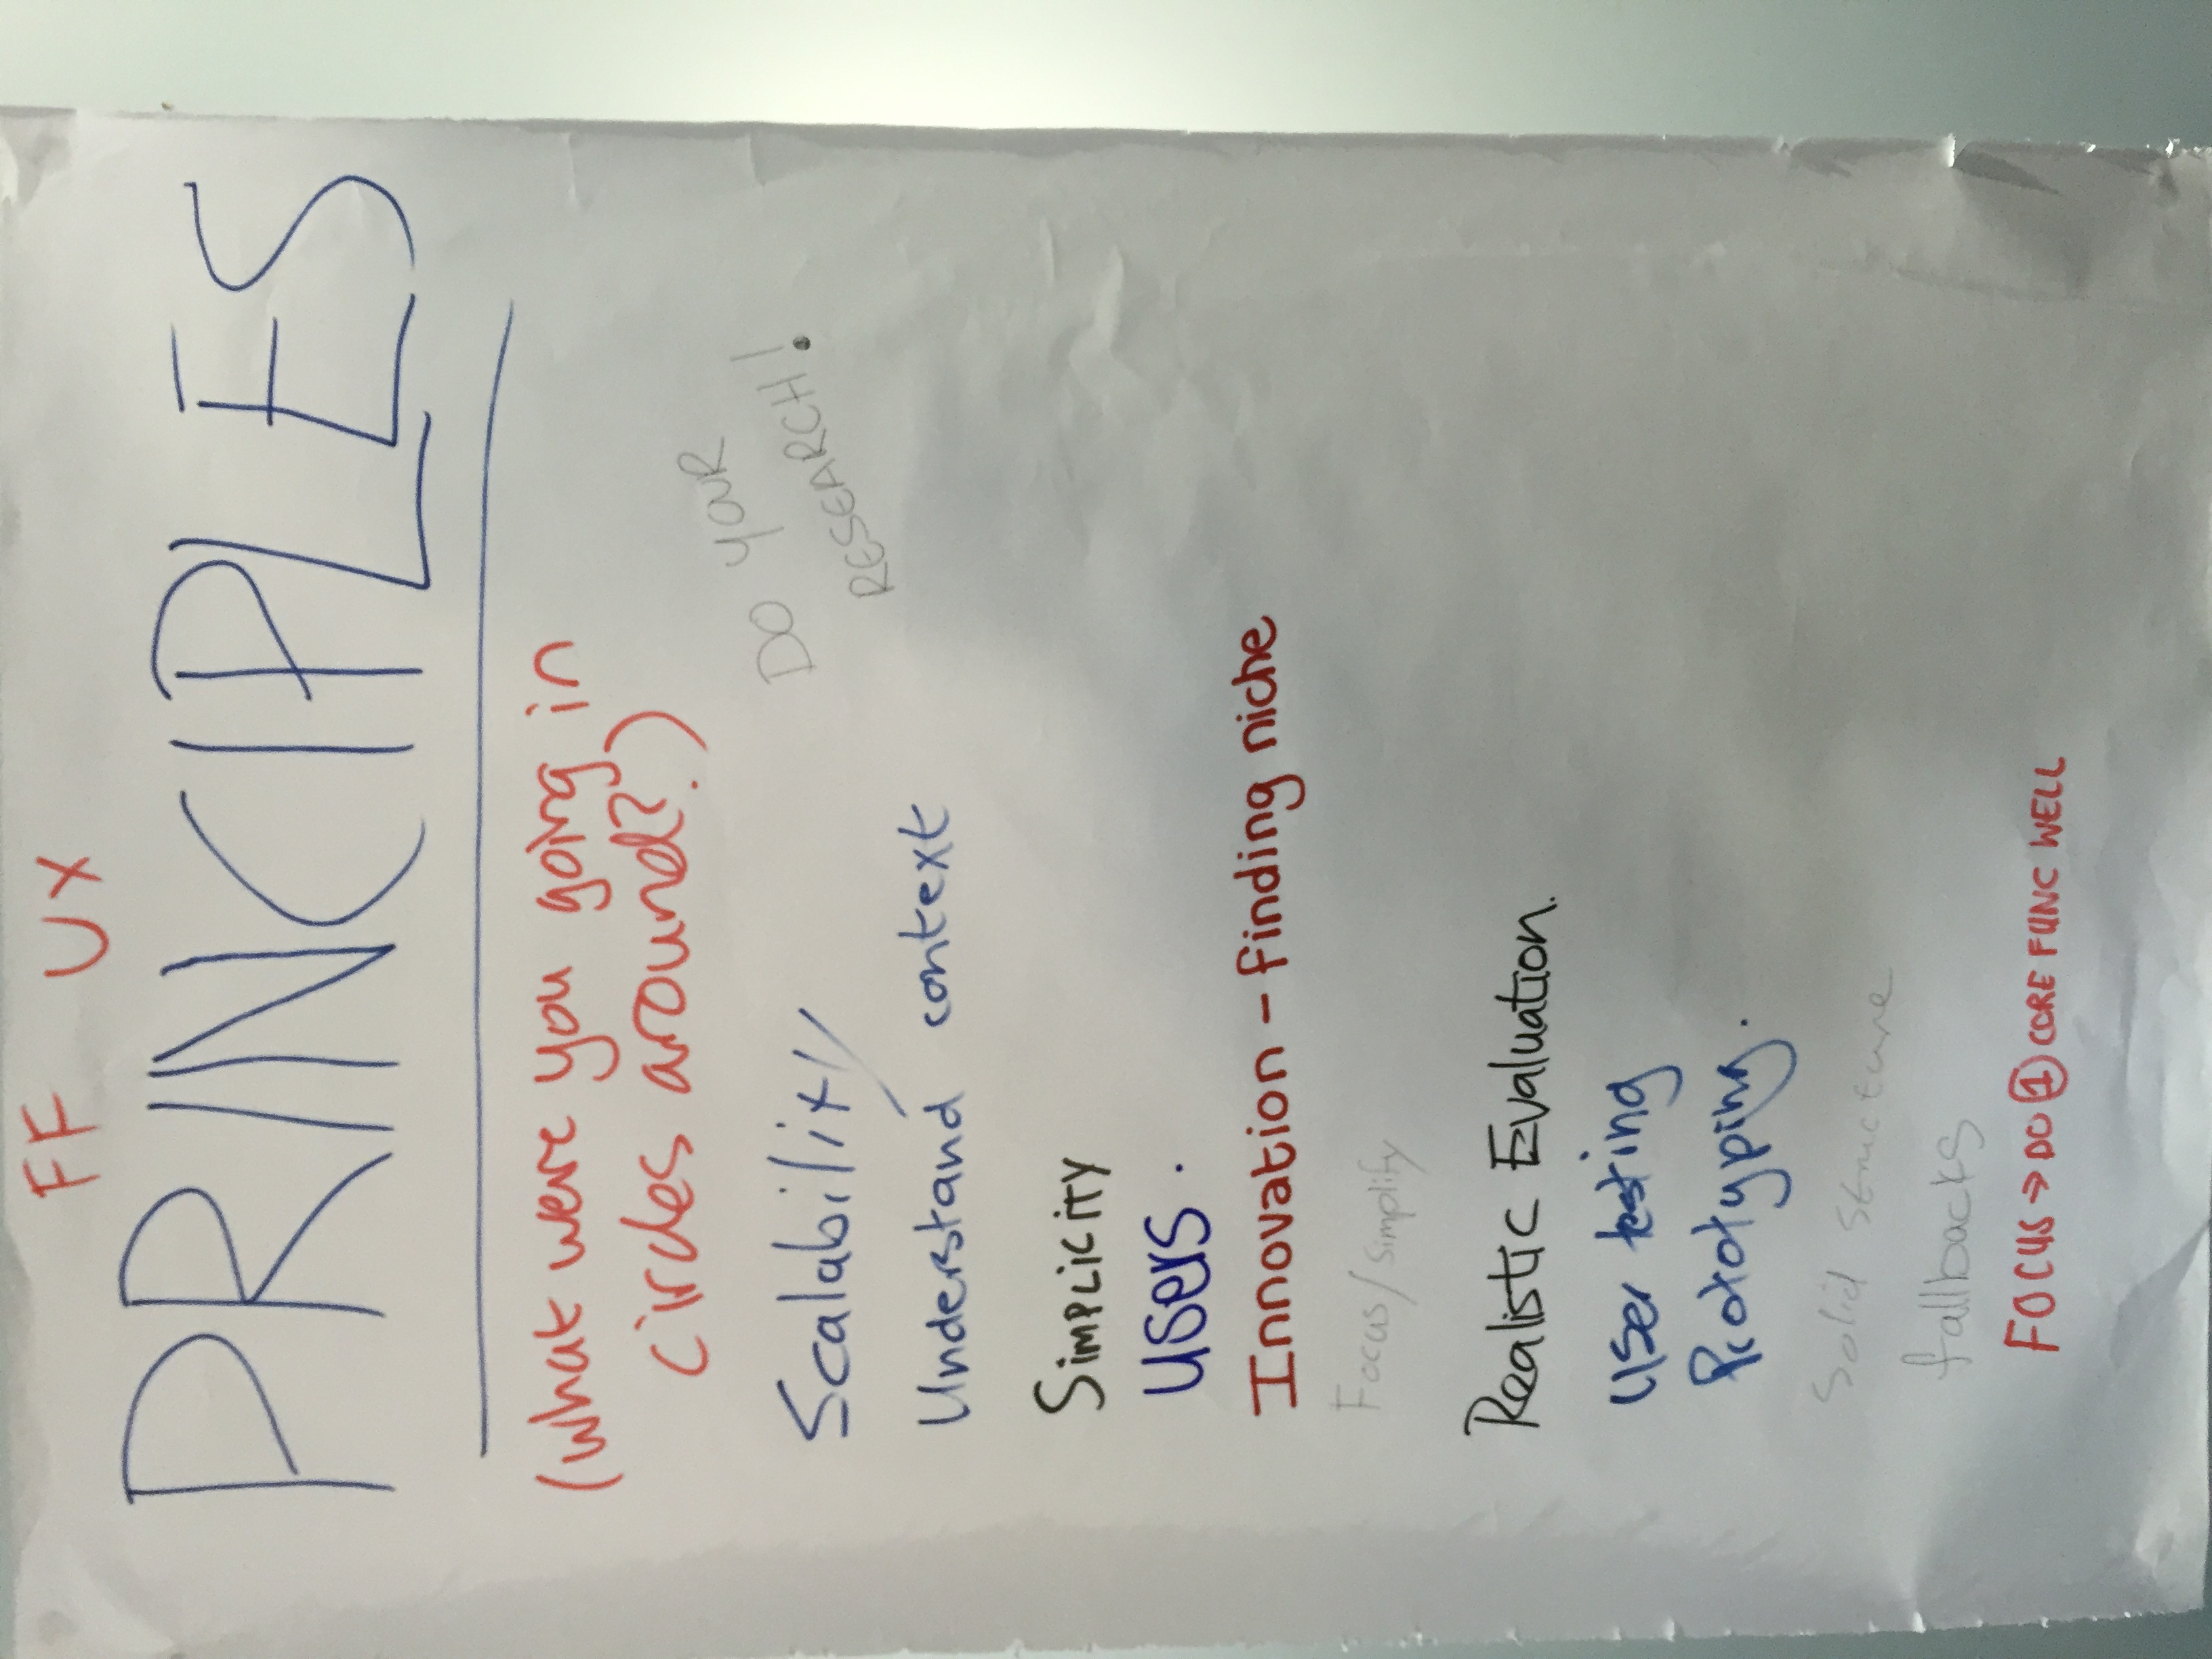 FF UX
PRINCIPLES
(what were you going in
circles around?)
DO YOUR
RESEARCH!
Scalability
Understand context
SIMPLICITY
Users.
Innovation - finding niche
Focus/simplify
Realistic Evaluation.
User testing
Prototyping.
Solid structure
fallbacks
FOCUS → DO ① CORE FUNC WELL